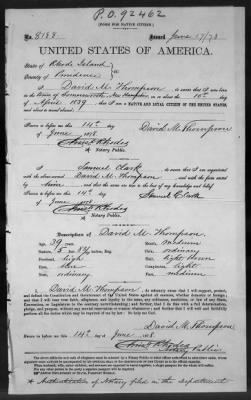 P.O. 92462
[FORM FOR NATIVE CITIZEN.]
No. 8188 Issued June 17/78
UNITED STATES OF AMERICA.
State of Rhode Island
County of Providence
I, David M. Thompson, do swear that I was born
in the Town of Somersworth, New Hampshire on or about the 10th day
of April 1839; that I am a NATIVE AND LOYAL CITIZEN OF THE UNITED STATES,
and about to travel abroad.
Sworn to before me this 14th day David M. Thompson
of June 1878.
Notary Public.
I, Samuel Clark, do swear that I am acquainted
with the above-named David M. Thompson and with the facts stated
by him and that the same are true to the best of my knowledge and belief.
Sworn to before me this 14th day Samuel Clark
of June 1878
Notary Public.
Description of David M. Thompson
Age: 39
Mouth: medium
Chin: ordinary
high Hair:
Eyes: blue Complexion: light
Nose: ordinary Face: medium
I, David M. Thompson, do solemnly swear that I will support, protect,
and defend the Constitution and Government of the United States against all enemies, whether domestic or
foreign; and that I will bear true faith, allegiance, and loyalty to the same, any ordinance, resolution, or law of any State,
Convention, or Legislature to the contrary notwithstanding; and further, that I do this with a full determination,
pledge, and purpose, without any mental reservation or evasion whatsoever; and further, that I will well and faithfully
perform all the duties which may be required of me by law: So help me God.
David M. Thompson
Sworn to before me this 14th day June 1878
Notary Public
Authenticates of Notary filed in the department